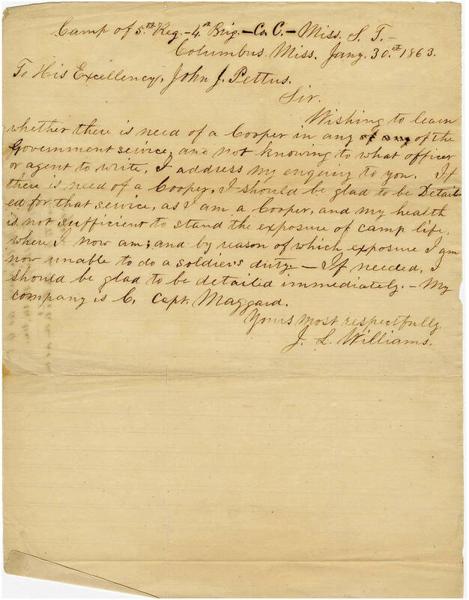 Camp of 5th Reg.- 4th Brig.- Co. C.- Miss. S. T.-
Columbus Miss. Jany. 30th 1863.
To His Excellency, John J. Pettus.
Sir.
Wishing to learn
whether there is need of a Cooper in any of the
Government service, and not knowing to what officer
or agent to write, I address my enquiry to you. If
there is need of a Cooper, I should be glad to be Detail
ed for that service, as I am a Cooper, and my health
is not sufficient to stand the exposure of camp life,
where I now am; and by reason of which exposure I am
now unable to do a soldier's duty. - If needed, I
should be glad to be detailed immediately. - My
company is C. Capt. Maggard.
Yours most respectfully.
J. L. Williams.